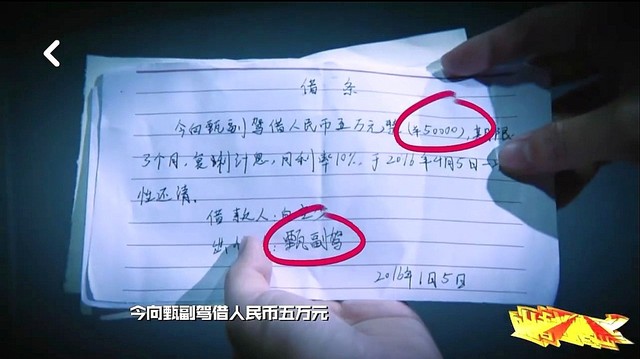 借 条
今向甄副驾借人民币五万元整(¥50000),期限
3个月,复利计息,月利率10%,于2016年4月5日一次
性还清。
借款人:
甄副驾
2016年1月5日
今向甄副驾借人民币五万元